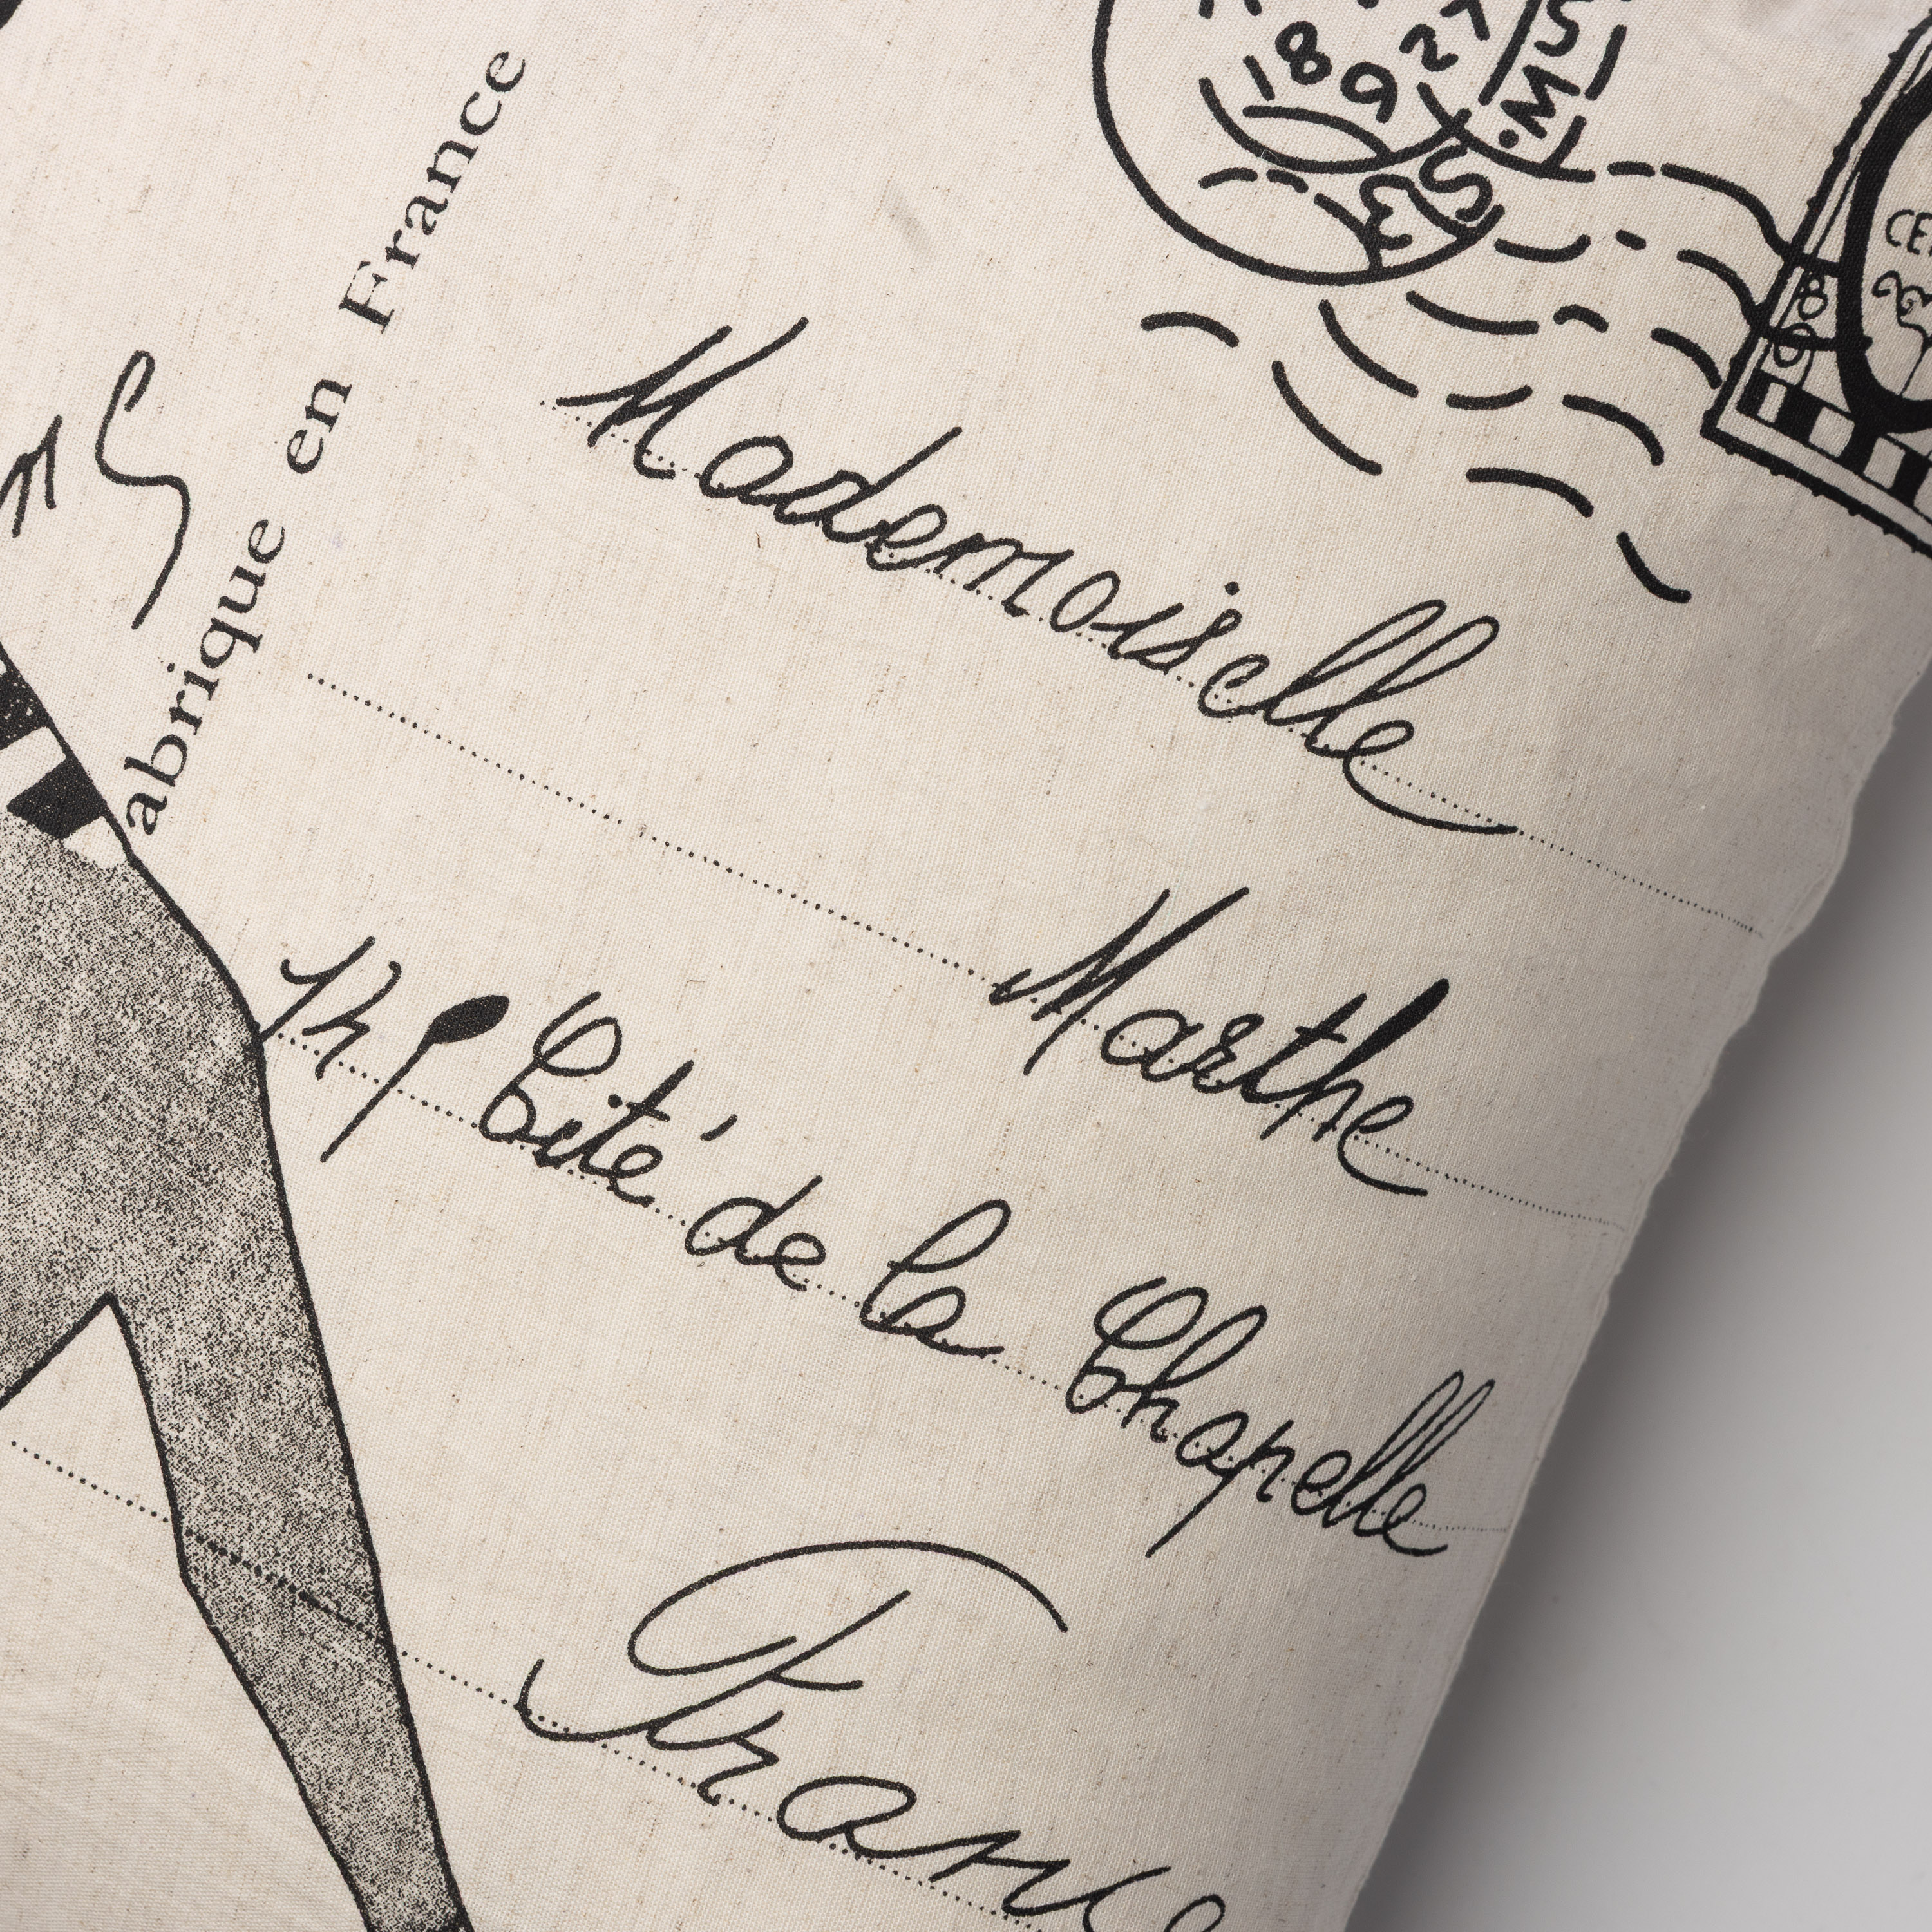 1892
27
CE
abrique en France
Mademoiselle
Marthe
Cité de la Chapelle
Franc